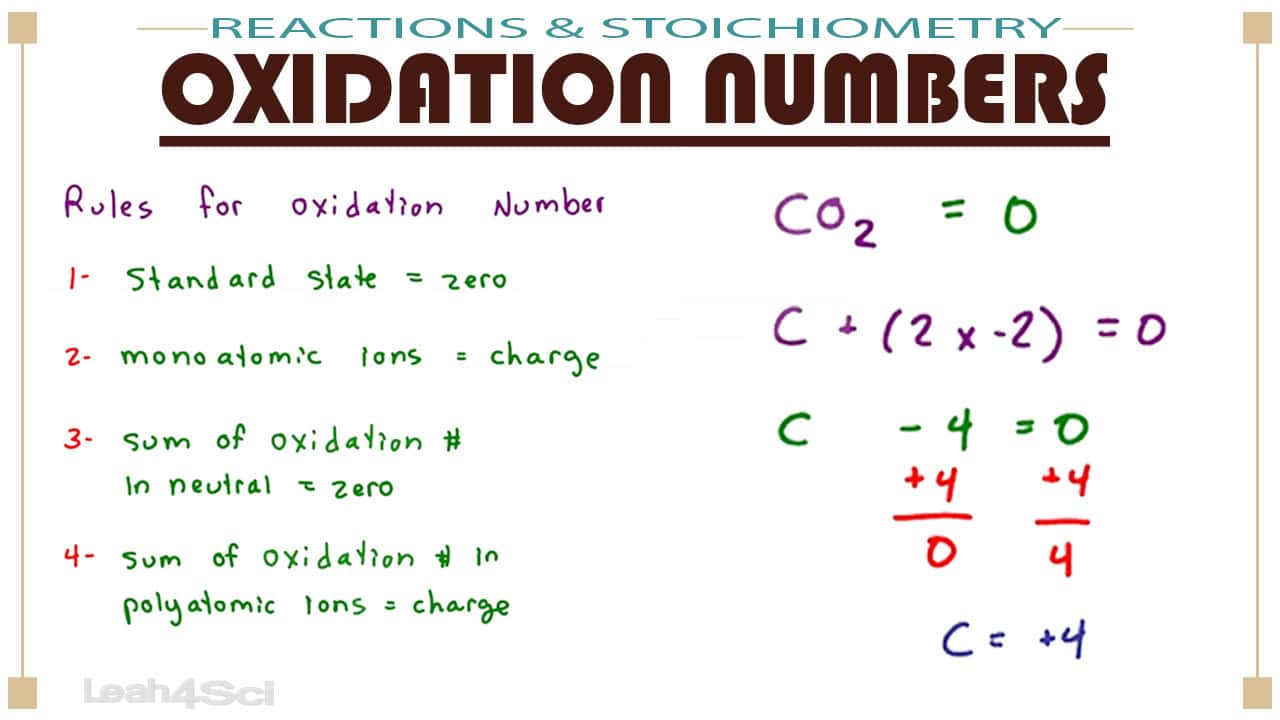 REACTIONS & STOICHIOMETRY
OXIDATION NUMBERS
Rules for oxidation Number
1- Standard state = zero
2- monoatomic ions = charge
3- sum of oxidation #
in neutral = zero
4- sum of oxidation # in
polyatomic ions = charge
CO₂ = 0
C + (2 x -2) = 0
C - 4 = 0
+4 +4
0 4
C = +4
Leah4Sci